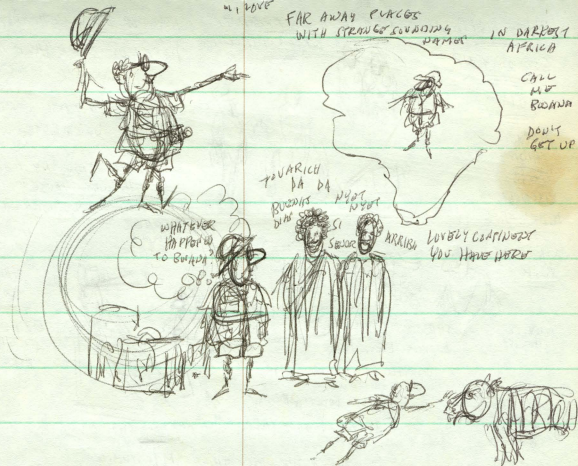 "I LOVE
FAR AWAY PLACES
WITH STRANGE SOUNDING
NAMES
IN DARKEST
AFRICA
CALL
ME
BWANA
DON'T
GET UP
TOVARICH
DA DA
BUENOS
DIAS
NYET
NYET
SI
SENOR
ARRIBA
LOVELY CONTINENT
YOU HAVE HERE
WHATEVER
HAPPENED
TO BWANA?